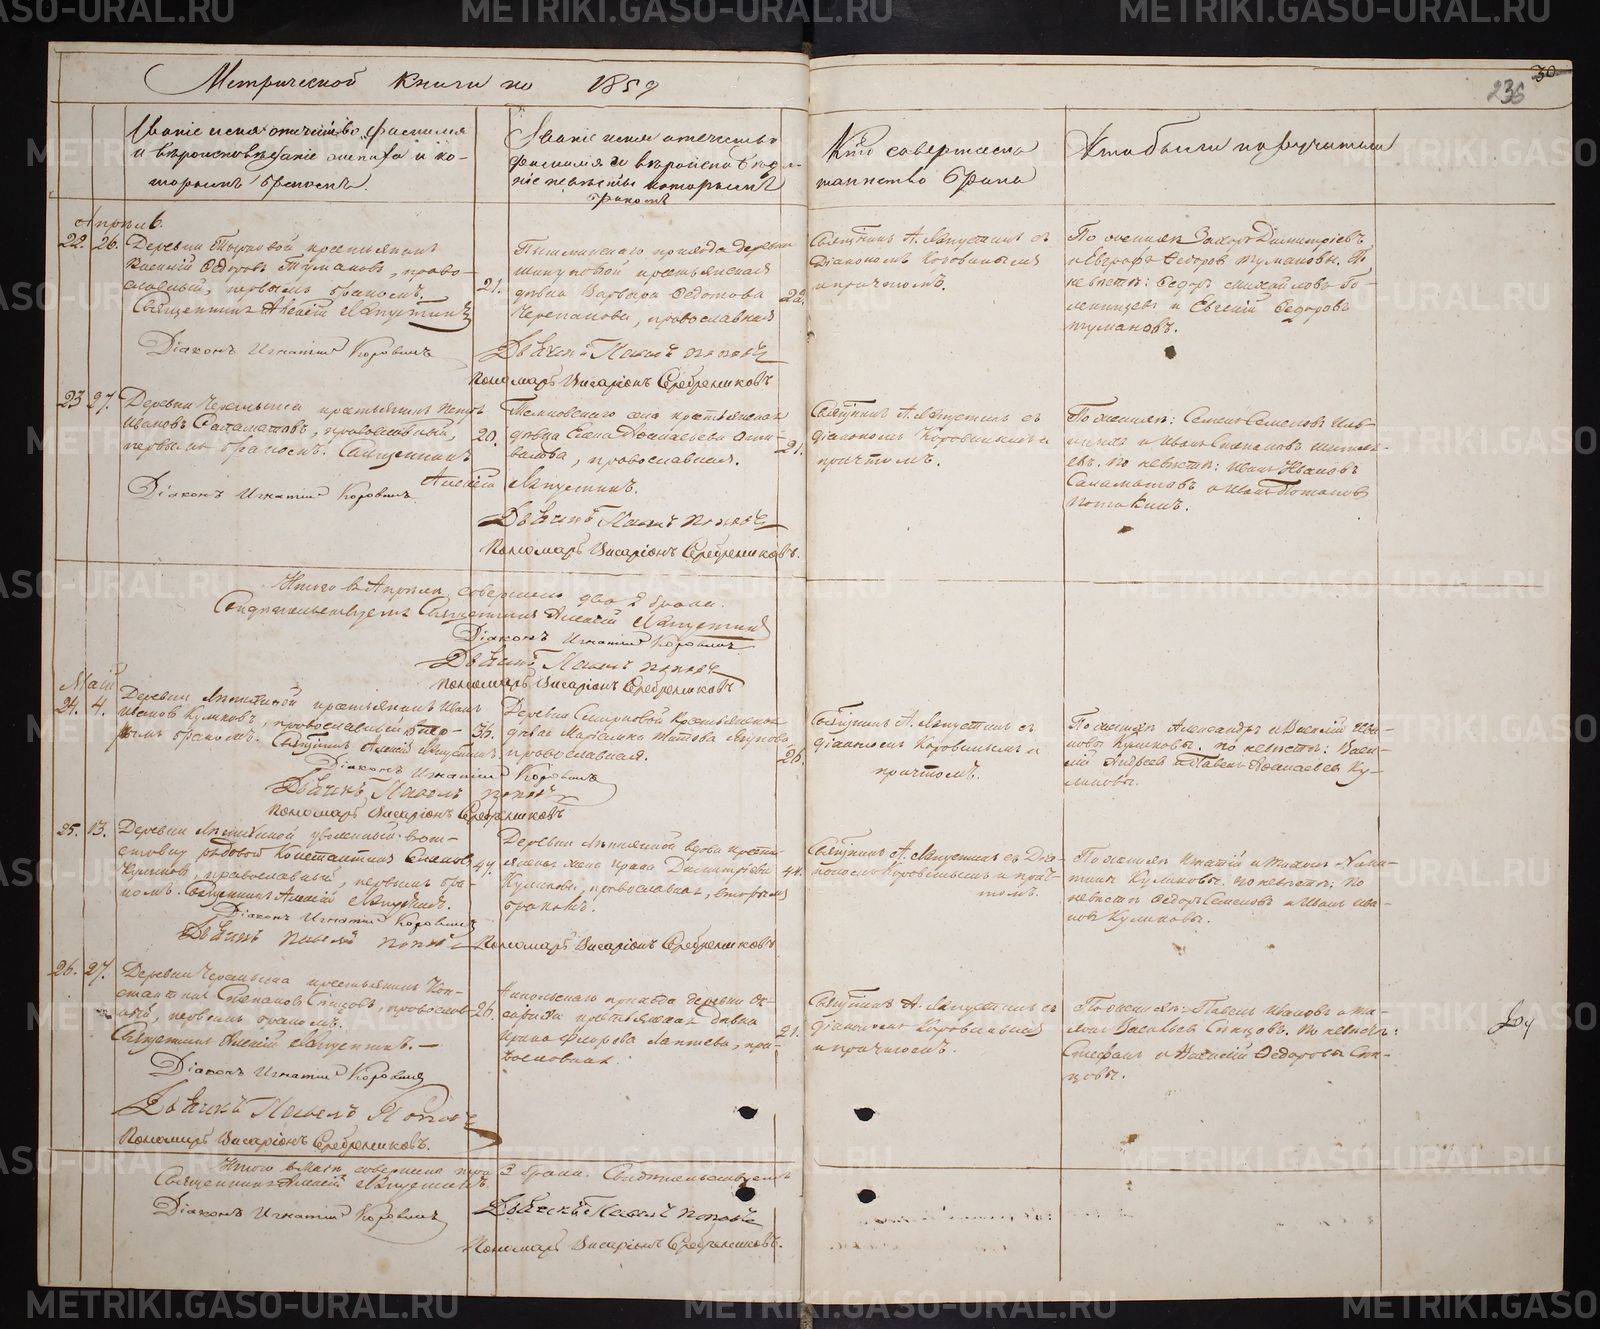 Метрической книги на 1859
30
236
Званіе имя отчество, фамилія
и вѣроисповѣданіе жениха и ко-
торымъ бракомъ.
Званіе имя отечество
фамилія и вѣроисповѣда-
ніе невѣсты которымъ
бракомъ
Кто совершалъ
таинство брака
Кто были поручители
Апрѣль.
22. 26. Деревни крестьянинъ
Федоровъ Тумановъ, право-
славный, первымъ бракомъ.
Священникъ Алексій Лапустинъ
Діаконъ Игнатій Коровинъ
21.
прихода деревни
крестьянская
дѣвка Варвара Федотова
Черепанова, православная
Дьячекъ Павелъ Поповъ
Пономарь Висаріонъ Серебренниковъ
22.
Священникъ А. Лапустинъ съ
Діакономъ Коровинымъ
и причтомъ.
По женихѣ Захаръ Димитріевъ
и Евграфъ Федоровъ Тумановы. По
невѣстѣ: Федоръ Михайловъ
и Евгеній Федоровъ
Тумановъ.
23 27. Деревни Черемыша крестьянинъ Петръ
Ивановъ Саламатовъ, православный,
первымъ бракомъ. Священникъ
Алексій Лапустинъ.
Діаконъ Игнатій Коровинъ
20.
села крестьянская
дѣвка Елена Афанасьева
православная.
Дьячекъ Павелъ Поповъ
Пономарь Висаріонъ Серебренниковъ.
21.
Священникъ А. Лапустинъ съ
діакономъ Коровинымъ и
причтомъ.
По женихѣ: Семенъ Семеновъ
и Иванъ Степановъ
По невѣстѣ: Иванъ Ивановъ
Саламатовъ и Иванъ Потаповъ
Потакинъ.
Итого въ Апрѣлѣ совершено два 2 брака.
Свидѣтельствуетъ Священникъ Алексій Лапустинъ
Діаконъ Игнатій Коровинъ
Дьячекъ Павелъ Поповъ
Пономарь Висаріонъ Серебренниковъ
Май
24. 4. Деревни крестьянинъ Иванъ
Ивановъ Куликовъ, православный
бракомъ. Священникъ Алексій Лапустинъ
Діаконъ Игнатій Коровинъ
Дьячекъ Павелъ Поповъ
Пономарь Висаріонъ Серебренниковъ
36.
Деревни Смирновой крестьянская
дѣвка Титова
православная.
26.
Священникъ А. Лапустинъ съ
діакономъ Коровинымъ и
причтомъ.
По женихѣ Александръ и Василій Ива-
новы Куликовы. По невѣстѣ: Васи-
лій Андреевъ и Павелъ Афанасьевъ Ку-
ликовы.
25. 13. Деревни уволенный
рядовой Константинъ Семеновъ
Куликовъ, православный, первымъ бра-
комъ. Священникъ Алексій Лапустинъ.
Діаконъ Игнатій Коровинъ
Дьячекъ Павелъ Поповъ
Пономарь Висаріонъ Серебренниковъ
47.
Деревни вдова крестья-
Димитріева
Куликова, православная, вторымъ
бракомъ.
Священникъ А. Лапустинъ съ Діа-
кономъ Коровинымъ и прич-
томъ.
По женихѣ Игнатій и Ники-
тины Куликовы. По невѣстѣ: По
невѣстѣ Федоръ Семеновъ и Иванъ Ива-
новъ Куликовы.
26. 27. Деревни Черемыша крестьянинъ Кон-
стантинъ Степановъ Спицовъ, православ-
ный, первымъ бракомъ.
Священникъ Алексій Лапустинъ. —
Діаконъ Игнатій Коровинъ
Дьячекъ Павелъ Поповъ
Пономарь Висаріонъ Серебренниковъ.
26.
прихода деревни
крестьянская дѣвка
Ирина Флорова Лаптева, пра-
вославная.
21.
Священникъ А. Лапустинъ съ
діакономъ Коровинымъ
и причтомъ.
По женихѣ: Павелъ Ивановъ и
Васильевъ Спицовъ. По невѣстѣ:
Стефанъ и Василій Федоровы Спи-
цовы.
Итого въ Маѣ совершено три 3 брака. Свидѣтельствуетъ
Священникъ Алексій Лапустинъ.
Діаконъ Игнатій Коровинъ
Дьячекъ Павелъ Поповъ
Пономарь Висаріонъ Серебренниковъ.
METRIKI.GASO-URAL.RU